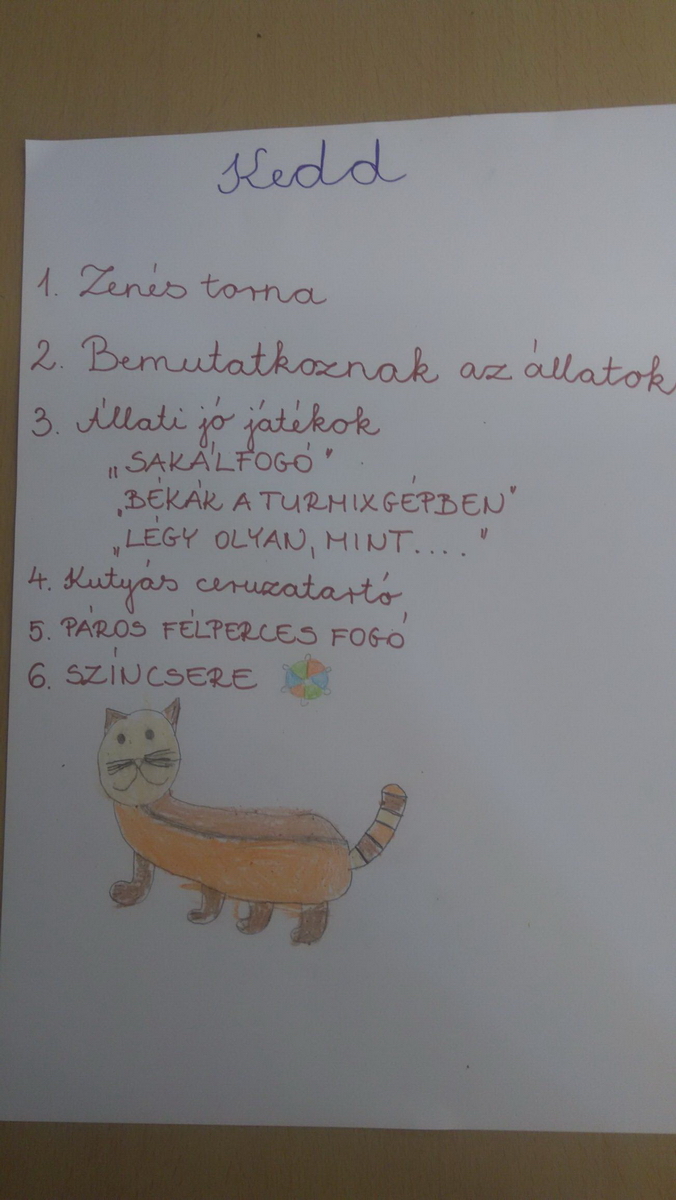 Kedd
1. Zenés torna
2. Bemutatkoznak az állatok
3. Állati jó játékok
„SAKÁLFOGÓ"
„BÉKÁK A TURMIXGÉPBEN"
„LÉGY OLYAN, MINT...."
4. Kutyás ceruzatartó
5. PÁROS FÉLPERCES FOGÓ
6. SZÍNCSERE